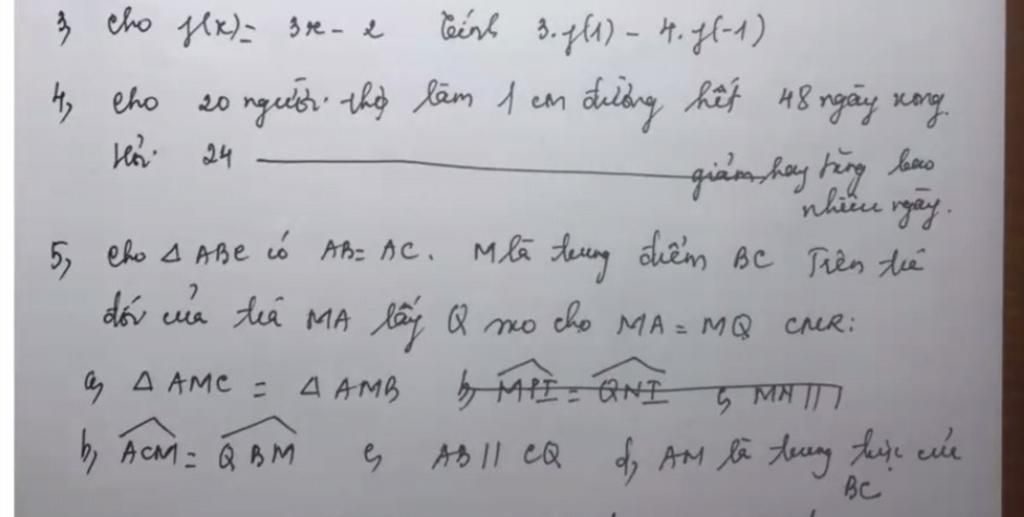 3, Cho f(x) = 3x - 2 Tính 3.f(1) - 4.f(-1)
4, Cho 20 người thợ làm 1 con đường hết 48 ngày xong.
Hỏi 24 ——— giảm hay tăng bao
nhiêu ngày.
5, Cho Δ ABC có AB = AC. M là trung điểm BC Trên tia
đối của tia MA lấy Q sao cho MA = MQ CMR:
a, Δ AMC = Δ AMB b, MPI = QNI c, MN //
b, ACM = QBM c, AB // CQ d, AM là trung trực của
BC